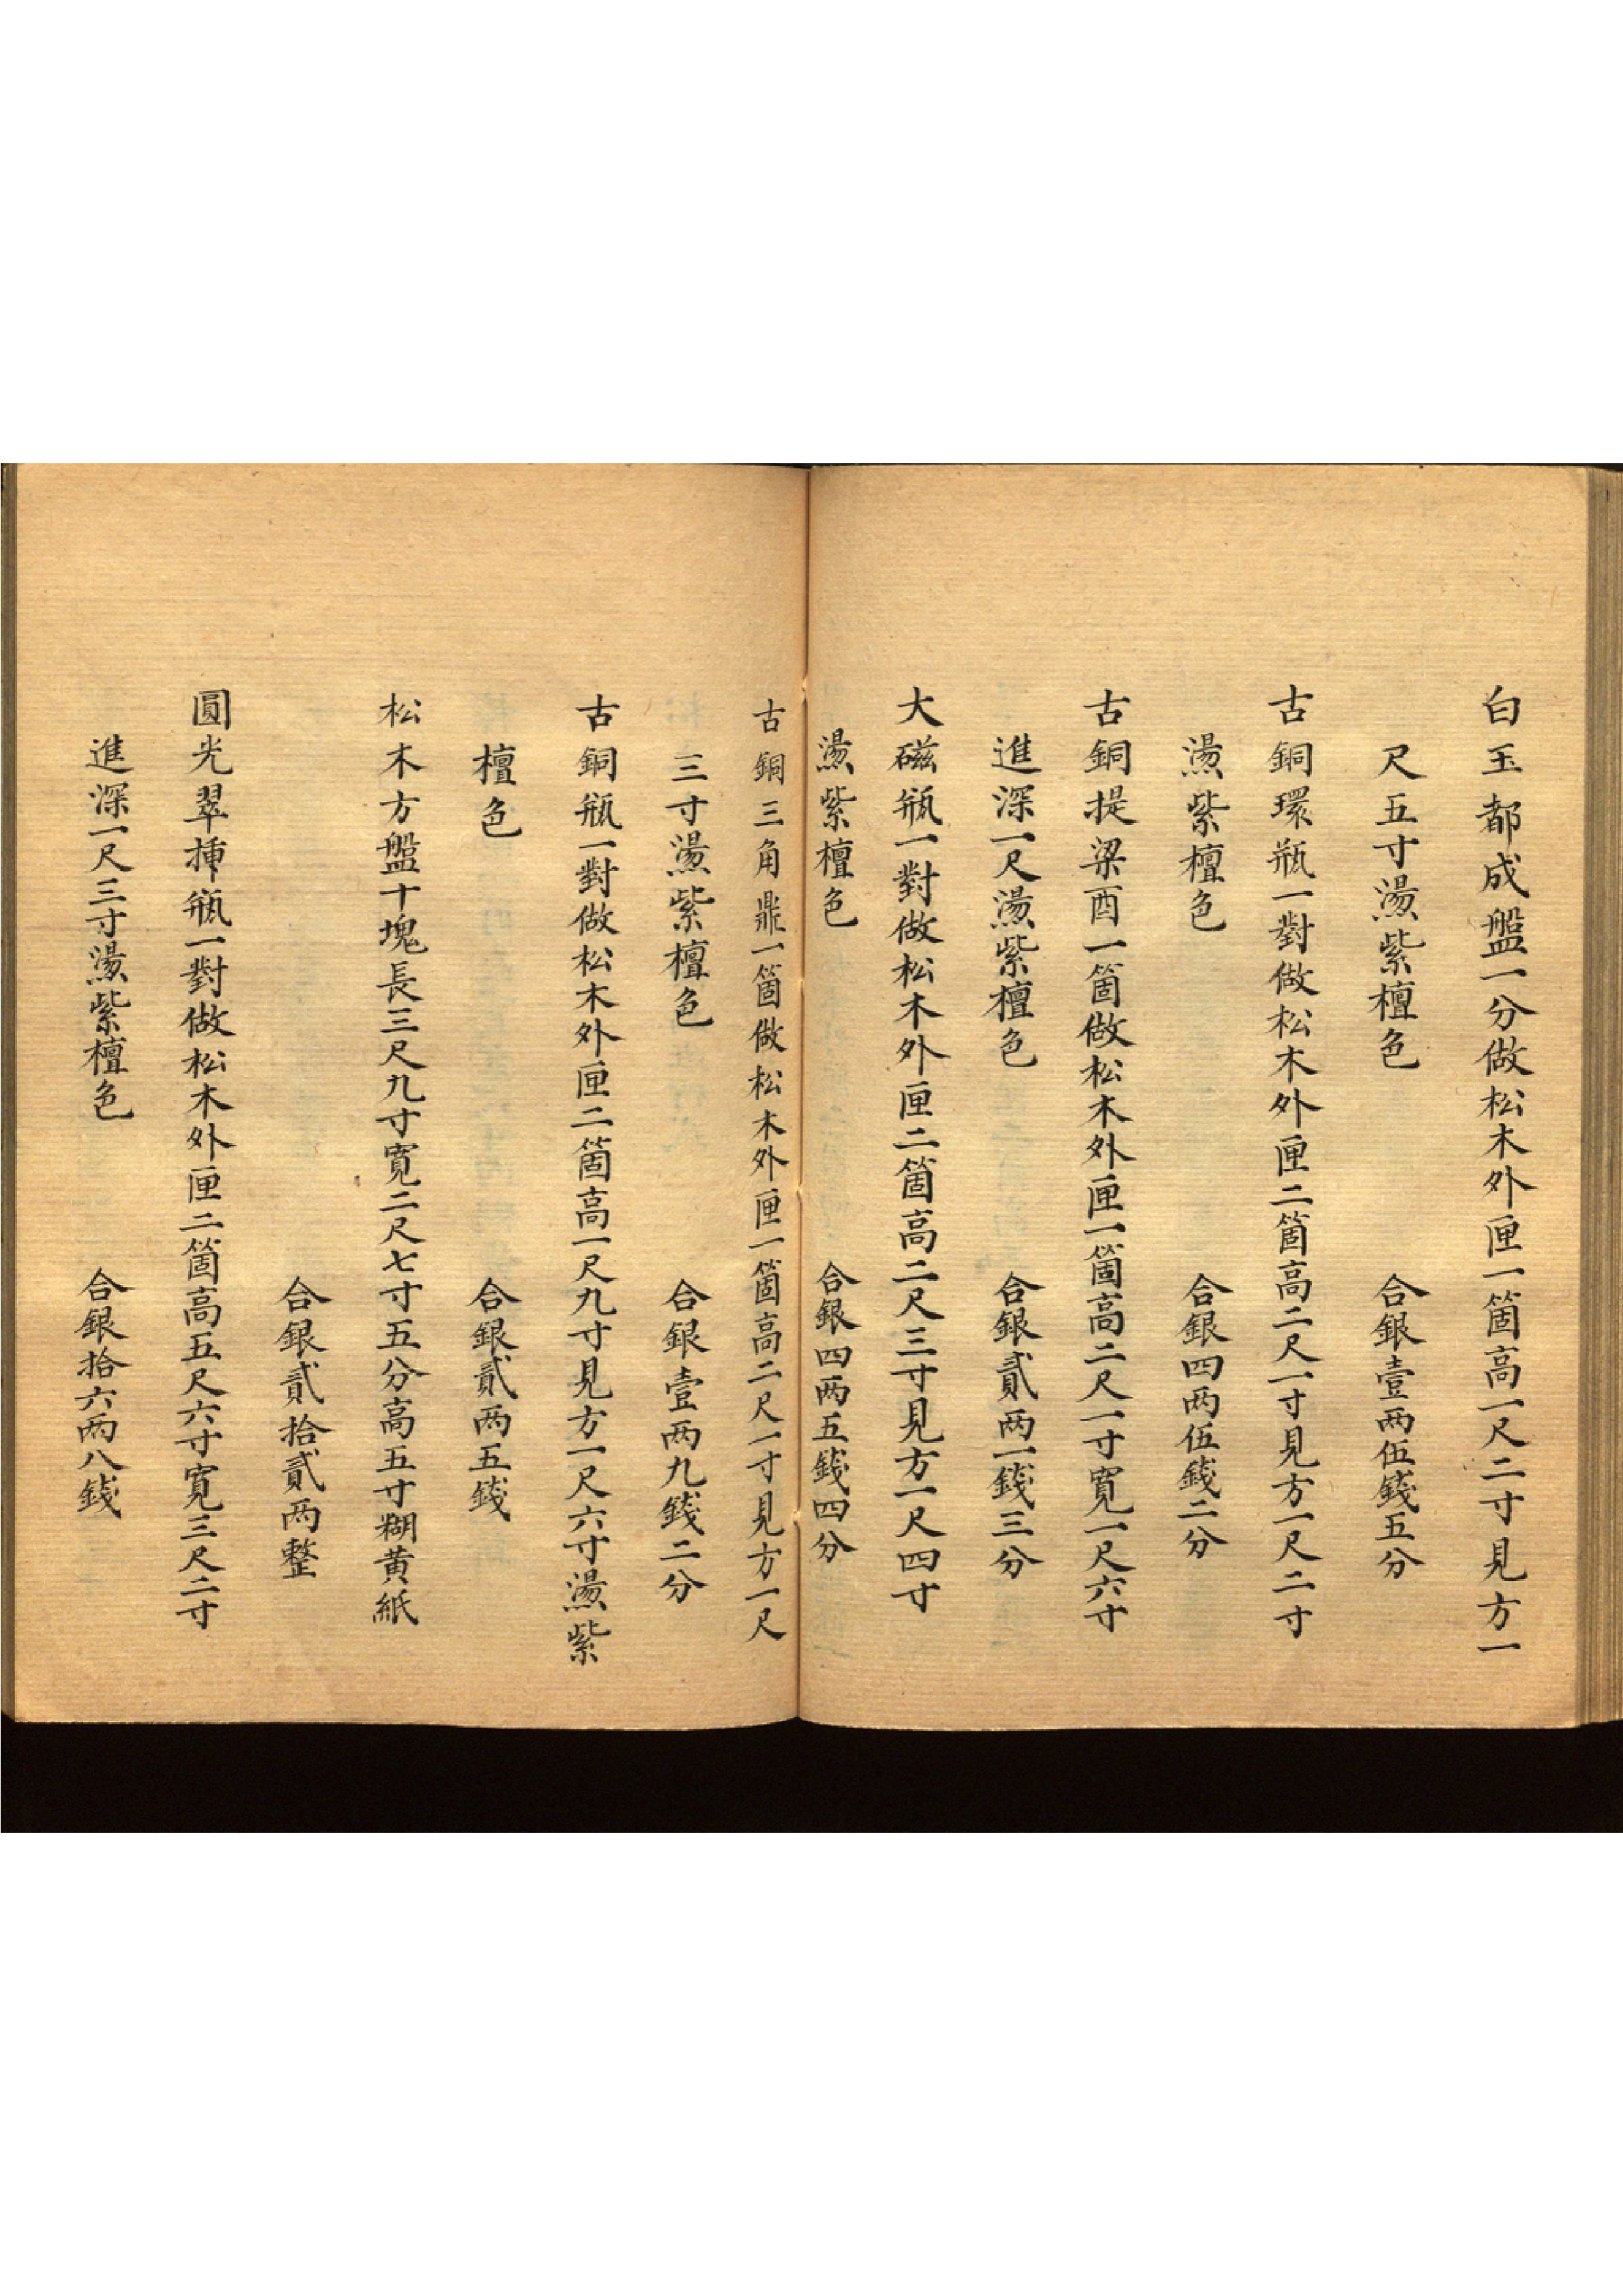 白玉都成盤一分做松木外匣一箇高一尺二寸見方一
尺五寸燙紫檀色　合銀壹两伍錢五分
古銅環瓶一對做松木外匣二箇高二尺一寸見方一尺二寸
燙紫檀色　合銀四两伍錢二分
古銅提梁酉一箇做松木外匣一箇高二尺一寸寬一尺六寸
進深一尺燙紫檀色　合銀貳两一錢三分
大磁瓶一對做松木外匣二箇高二尺三寸見方一尺四寸
燙紫檀色　合銀四两五錢四分
古銅三角鼎一箇做松木外匣一箇高二尺一寸見方一尺
三寸燙紫檀色　合銀壹两九錢二分
古銅瓶一對做松木外匣二箇高一尺九寸見方一尺六寸燙紫
檀色　合銀貳两五錢
松木方盤十塊長三尺九寸寬二尺七寸五分高五寸糊黃紙
合銀貳拾貳两整
圓光翠揷瓶一對做松木外匣二箇高五尺六寸寬三尺二寸
進深一尺三寸燙紫檀色　合銀拾六两八錢